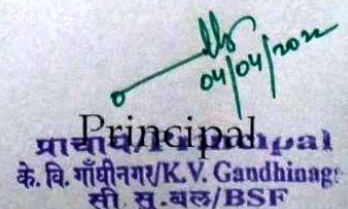 04/04/2022
Principal
प्राचार्य/Principal
के. वि. गाँधीनगर/K.V. Gandhinag
सी. सु. बल/BSF